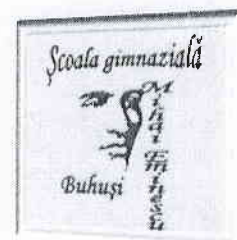 Școala gimnazială
Mihai Eminescu
Buhuși